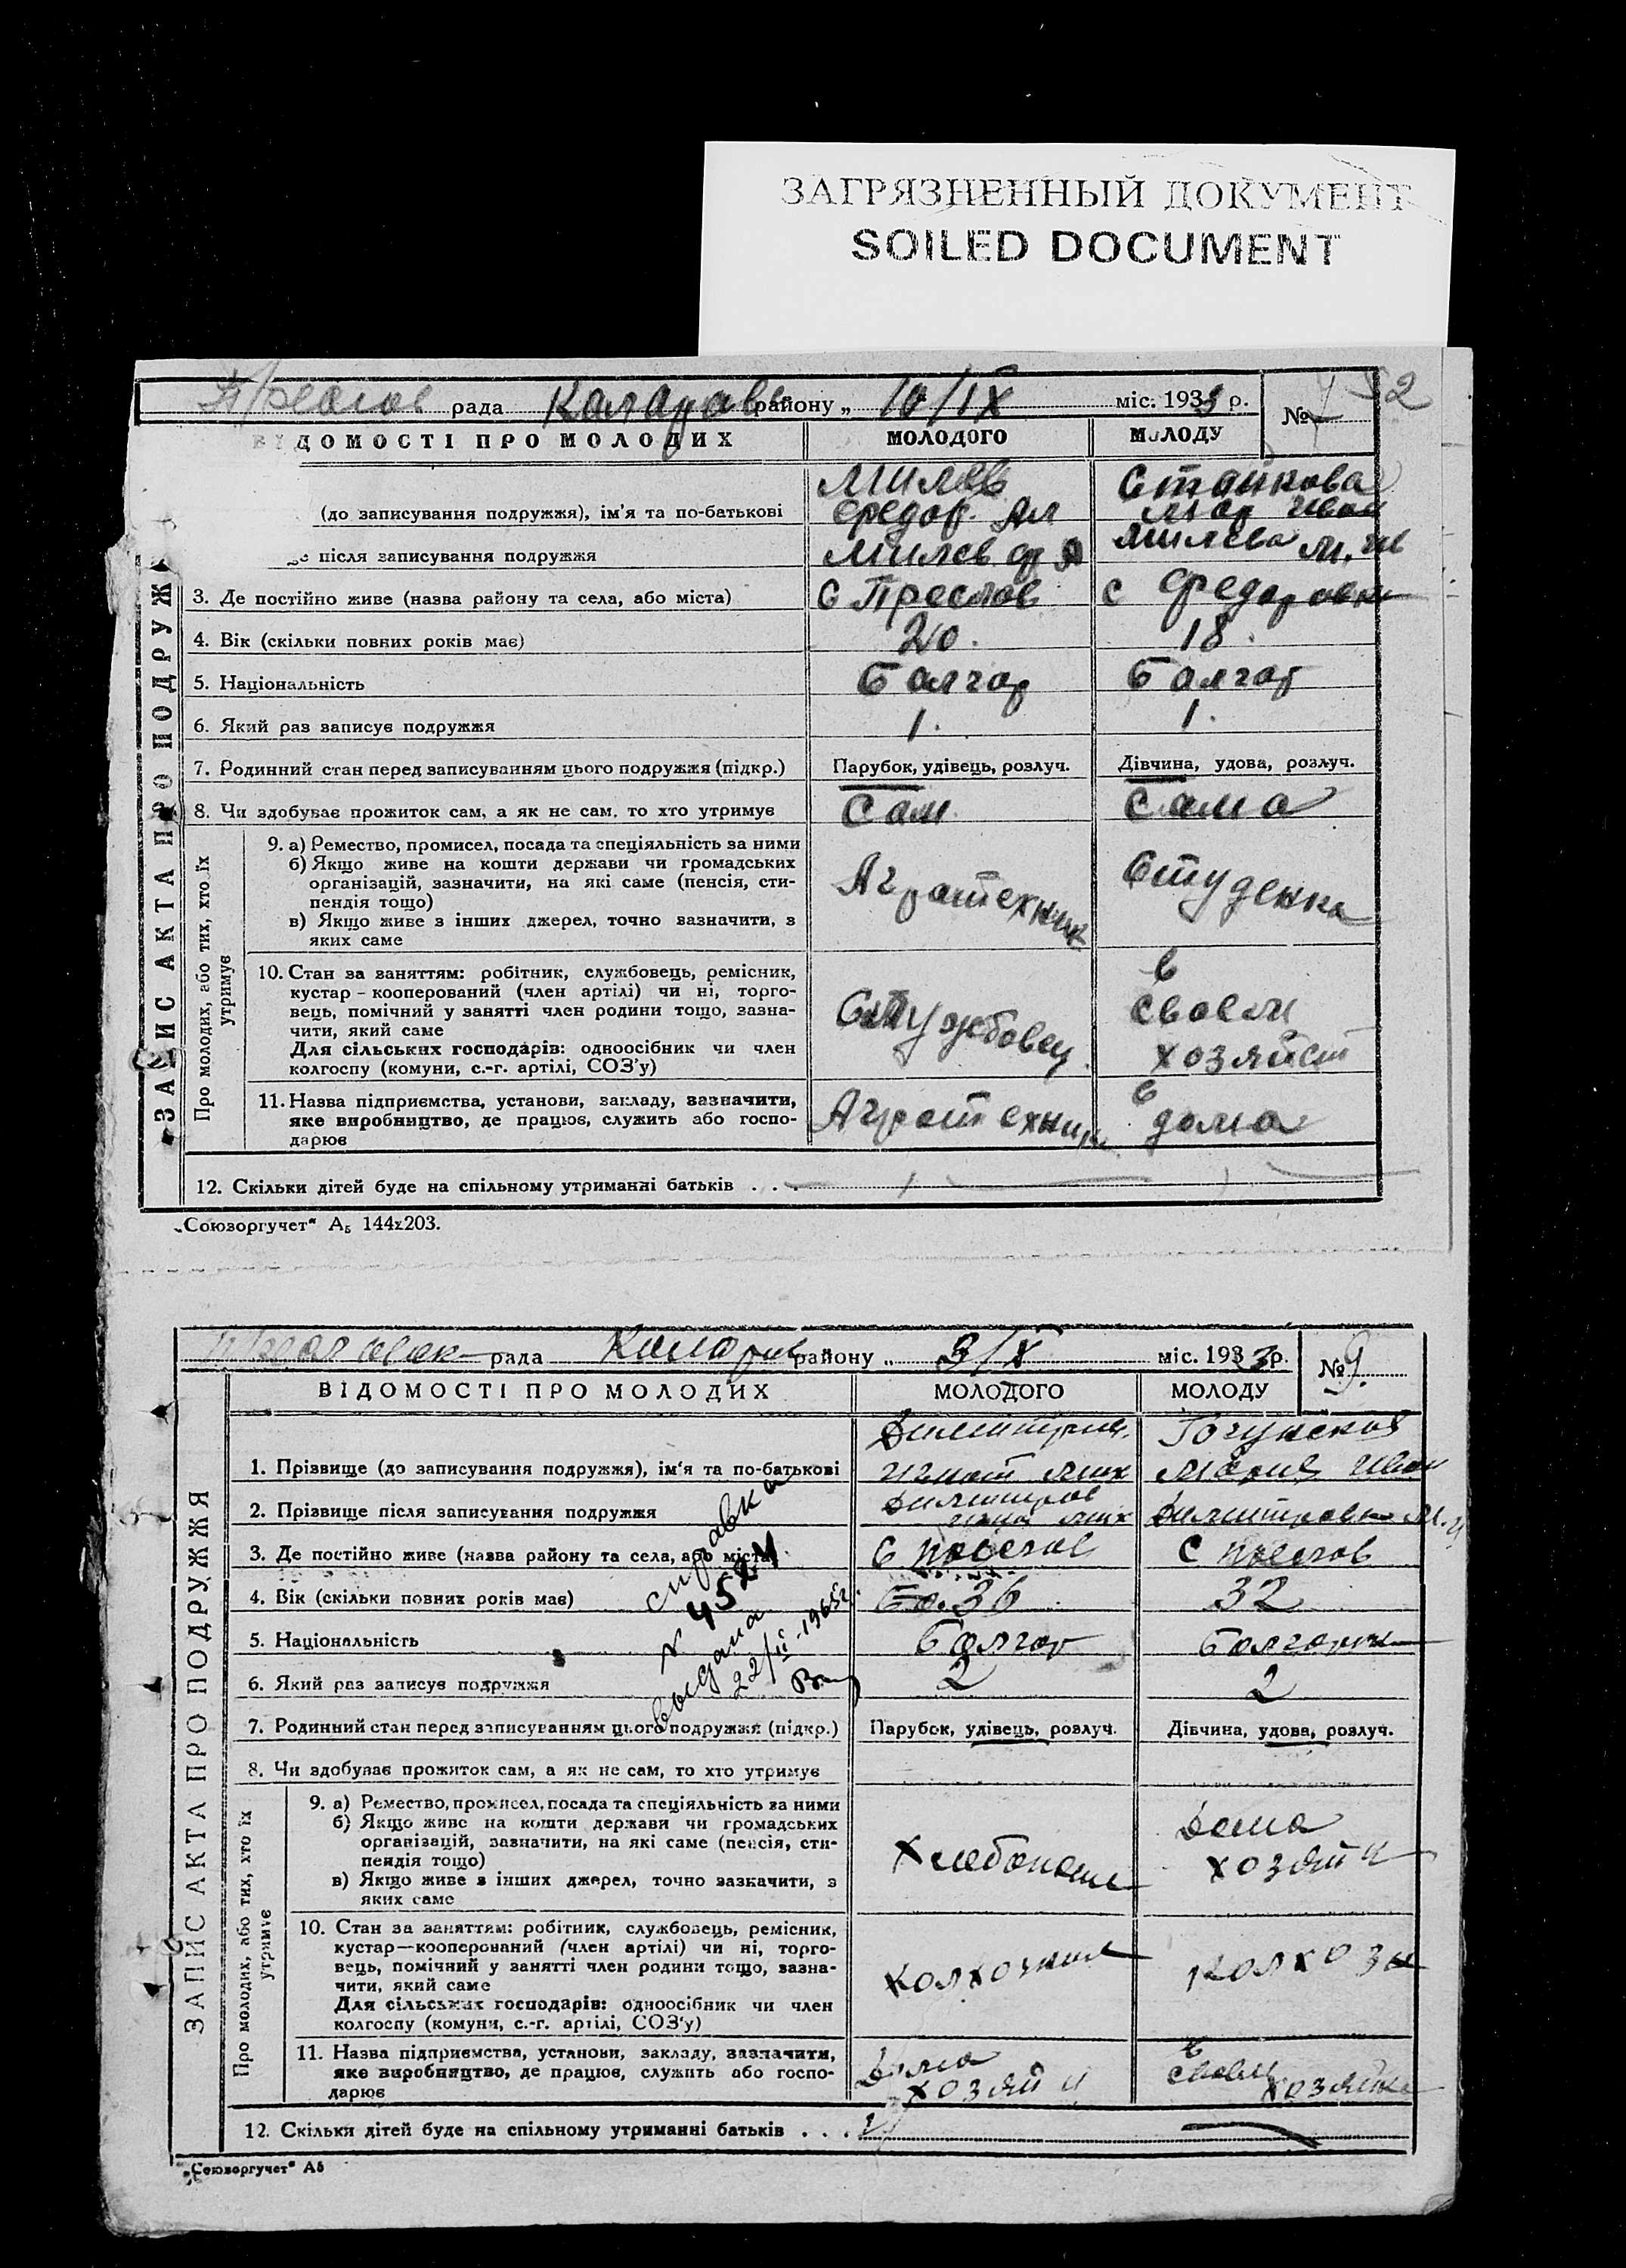 ЗАГРЯЗНЕННЫЙ ДОКУМЕНТ
SOILED DOCUMENT
Преслов рада Коларов району „ 10/IX міс. 1933 р. №
52
ВІДОМОСТІ ПРО МОЛОДИХ МОЛОДОГО МОЛОДУ
Милев Стойкова
(до записування подружжя), ім'я та по-батькові Федор. Ал Мар Иван
після записування подружжя Милев ф А Милева М. Ив
3. Де постійно живе (назва району та села, або міста) С Преслов с Федоровка
4. Вік (скільки повних років має) 20. 18.
5. Національність Болгар Болгар
6. Який раз записує подружжя 1. 1.
7. Родинний стан перед записуванням цього подружжя (підкр.) Парубок, удівець, розлуч. Дівчина, удова, розлуч.
8. Чи здобуває прожиток сам, а як не сам, то хто утримує Сам Сама
ЗАПИС АКТА ПРО ПОДРУЖ
Про молодих, або тих, хто їх утримує
9. а) Ремество, промисел, посада та спеціяльність за ними
б) Якщо живе на кошти держави чи громадських
організацій, зазначити, на які саме (пенсія, сти-
пендія тощо)
в) Якщо живе з інших джерел, точно зазначити, з
яких саме
Агротехник Студенка
10. Стан за заняттям: робітник, службовець, ремісник,
кустар – кооперований (член артілі) чи ні, торго-
вець, помічний у занятті член родини тощо, зазна-
чити, який саме
Для сільських господарів: одноосібник чи член
колгоспу (комуни, с.-г. артілі, СОЗ'у)
Службовец в
своем
хозяйст
11. Назва підприємства, установи, закладу, зазначити,
яке виробництво, де працює, служить або госпо-
дарює
Агротехник дома
12. Скільки дітей буде на спільному утриманні батьків . . .
„Союзоргучет" А5 144х203.
рада Колоров району „ 3/X міс. 1933 р. № 9.
ВІДОМОСТІ ПРО МОЛОДИХ МОЛОДОГО МОЛОДУ
1. Прізвище (до записування подружжя), ім'я та по-батькові Игнат Мих Мария Иван
2. Прізвище після записування подружжя Димитров Мих Димитрова М. И
3. Де постійно живе (назва району та села, або міста) С Преслов С Преслов
4. Вік (скільки повних років має) 36 32
5. Національність Болгар Болгарка
6. Який раз записує подружжя 2 2
7. Родинний стан перед записуванням цього подружжя (підкр.) Парубок, удівець, розлуч. Дівчина, удова, розлуч.
8. Чи здобуває прожиток сам, а як не сам, то хто утримує
справка
N 4524
выдана
22/II-1965г.
ЗАПИС АКТА ПРО ПОДРУЖЖЯ
Про молодих, або тих, хто їх утримує
9. а) Ремество, промисел, посада та спеціяльність за ними
б) Якщо живе на кошти держави чи громадських
організацій, зазначити, на які саме (пенсія, сти-
пендія тощо)
в) Якщо живе з інших джерел, точно зазначити, з
яких саме
Дома
хозяйк
10. Стан за заняттям: робітник, службовець, ремісник,
кустар—кооперований (член артілі) чи ні, торго-
вець, помічний у занятті член родини тощо, зазна-
чити, який саме
Для сільських господарів: одноосібник чи член
колгоспу (комуни, с.-г. артілі, СОЗ'у)
Колхозник
11. Назва підприємства, установи, закладу, зазначити,
яке виробництво, де працює, служить або госпо-
дарює
Дома в
своем
12. Скільки дітей буде на спільному утриманні батьків . . .
„Союзоргучет" А5